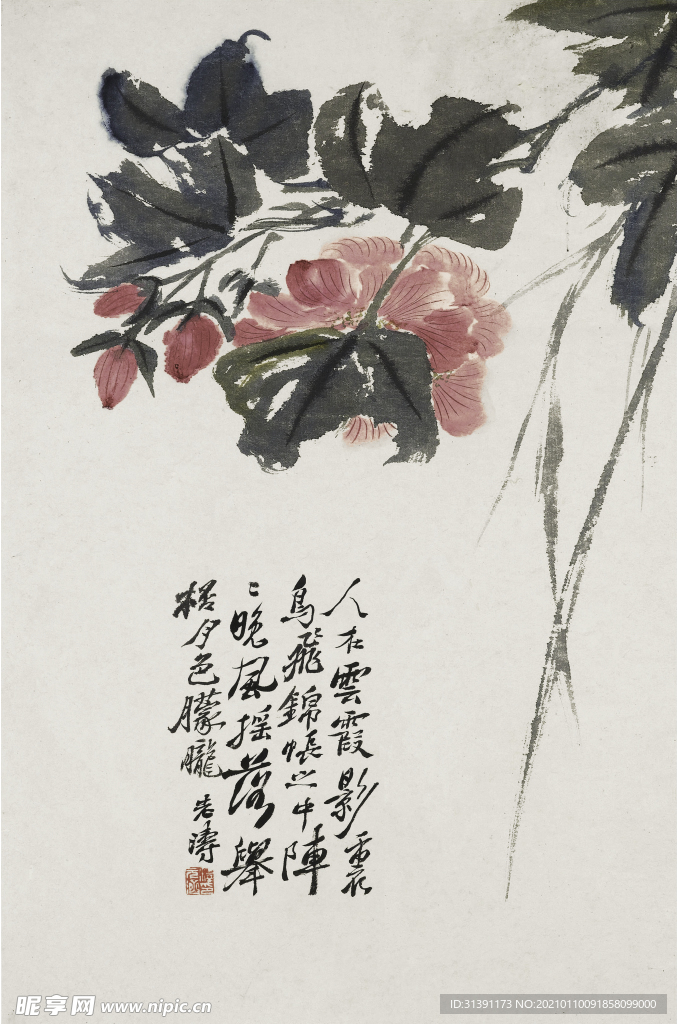 人在雲霞影裏
鳥飛錦帳之中陣
〻晚風搖落舉
桮夕色朦朧 老濤
昵享网 www.nipic.cn
ID:31391173 NO:20210110091858099000